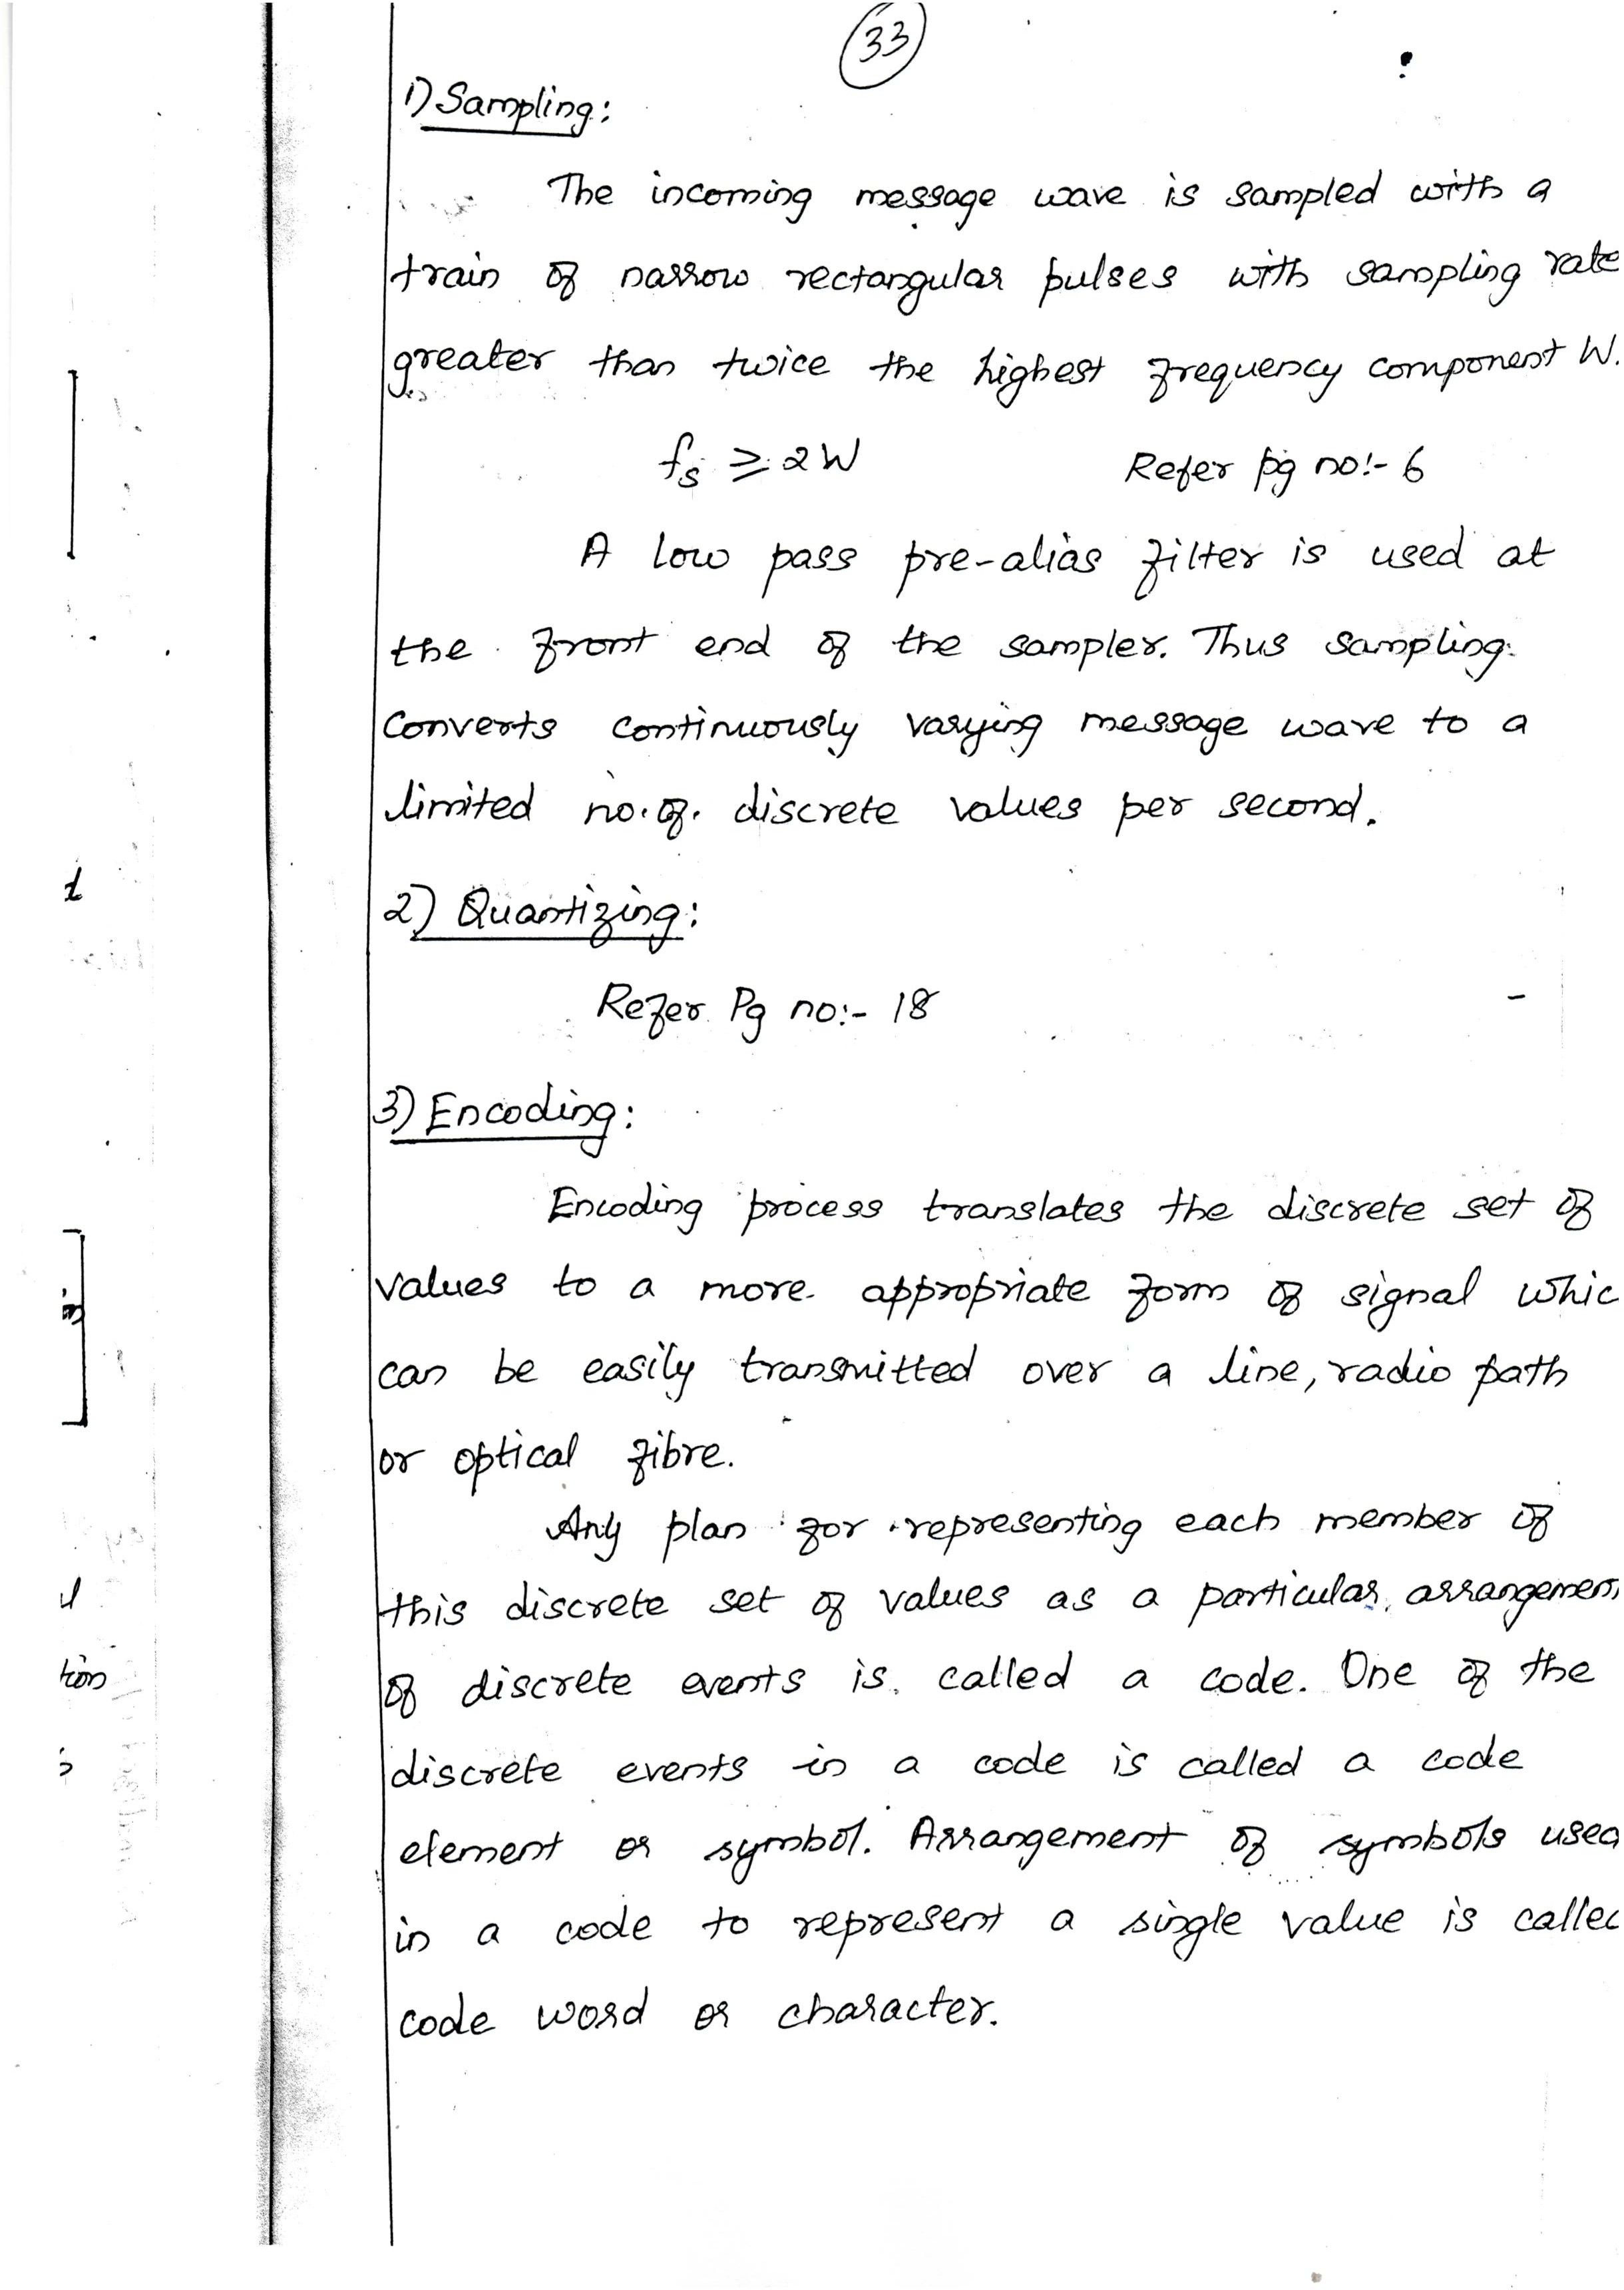 33
1) Sampling:
The incoming message wave is sampled with a
train of narrow rectangular pulses with sampling rate
greater than twice the highest frequency component W.
fs ≥ 2W Refer pg no:- 6
A low pass pre-alias filter is used at
the front end of the sampler. Thus sampling
converts continuously varying message wave to a
limited no. of. discrete values per second.
2) Quantizing:
Refer Pg no:- 18
3) Encoding:
Encoding process translates the discrete set of
values to a more appropriate form of signal whic
can be easily transmitted over a line, radio path
or optical fibre.
Any plan for representing each member of
this discrete set of values as a particular arrangemen
of discrete events is called a code. One of the
discrete events in a code is called a code
element or symbol. Arrangement of symbols used
in a code to represent a single value is called
code word or character.
tion